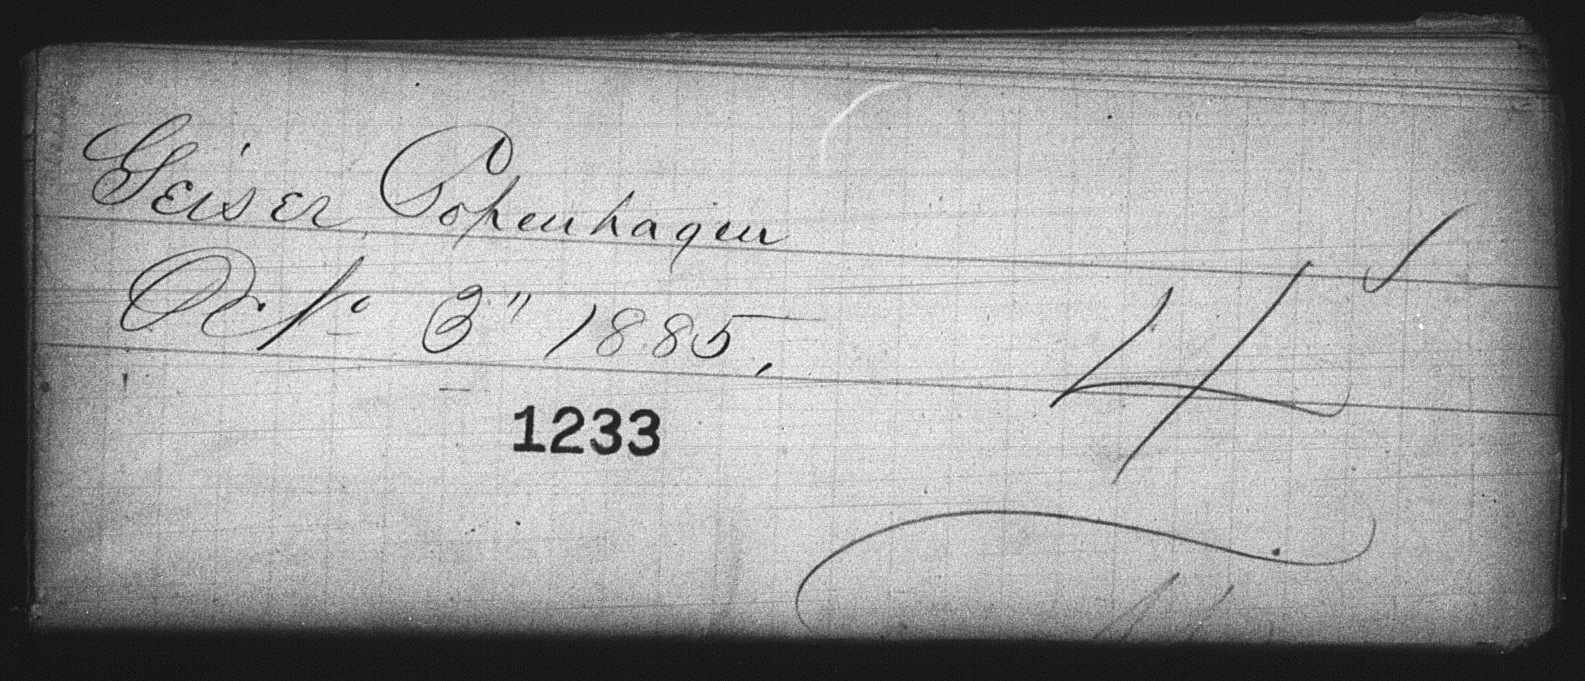 Geiser Copenhagen
Octo 3" 1885,
4
1233